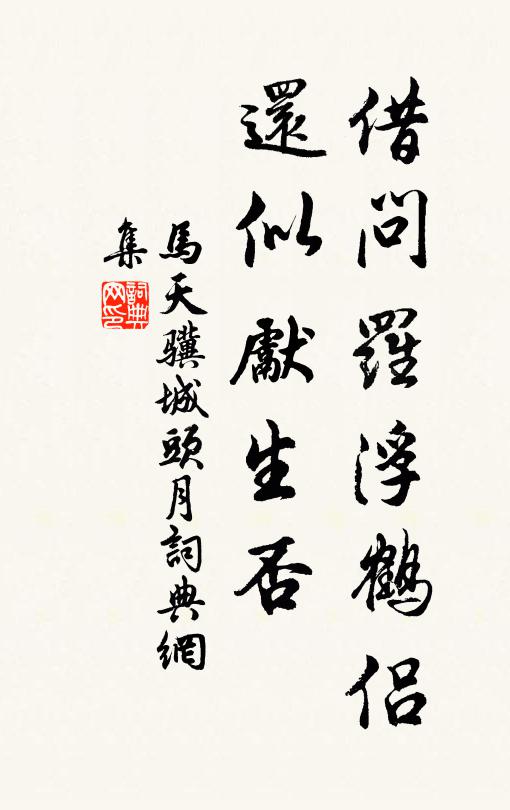 借問羅浮鶴侶
還似獻生否
馬天驥城頭月詞典網
集
詞典
网印